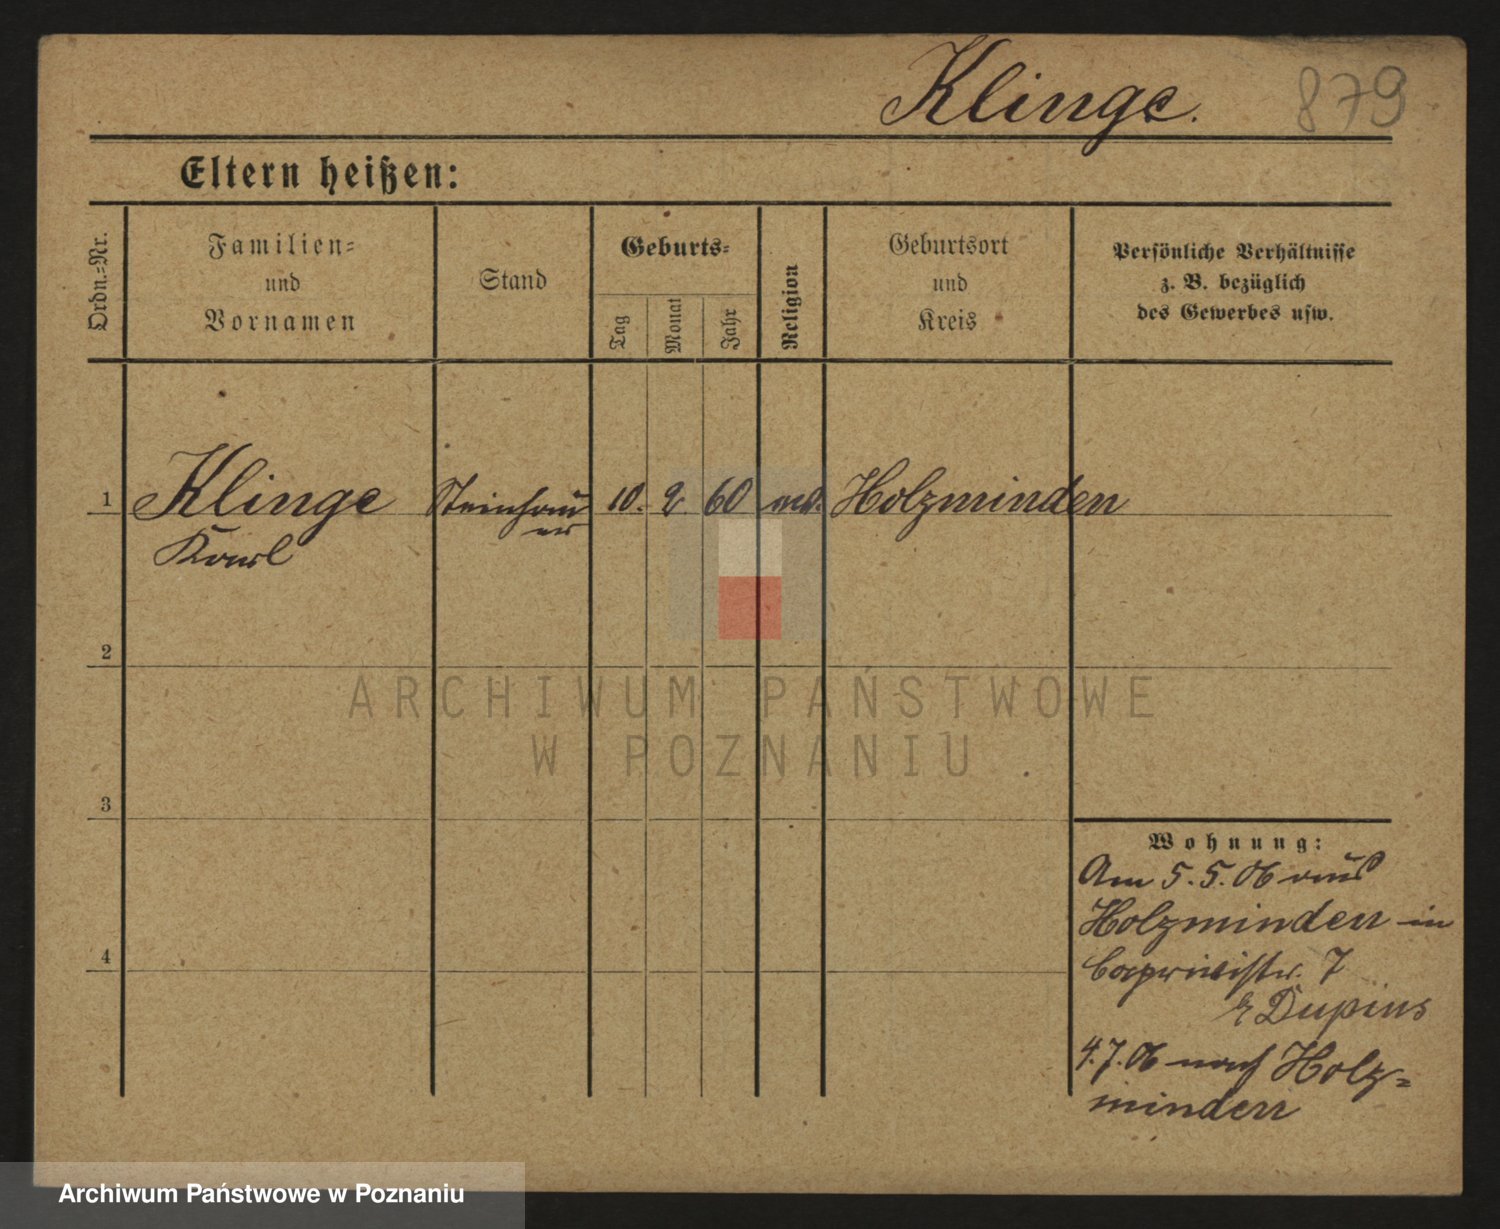 Klinge.
879
Eltern heißen:
Ordn.-Nr.
Familien-
und
Vornamen
Stand
Geburts-
Tag
Monat
Jahr
Religion
Geburtsort
und
Kreis
Persönliche Verhältnisse
z. B. bezüglich
des Gewerbes usw.
1
Klinge
Karl
Steinhau
er
10.
2
60
Holzminden
2
ARCHIWUM PAŃSTWOWE
W POZNANIU
3
Wohnung:
Am 5.5.06 aus
Holzminden in
Caprivistr. 7
Dupius
4.7.06 nach Holz-
minden
4
Archiwum Państwowe w Poznaniu